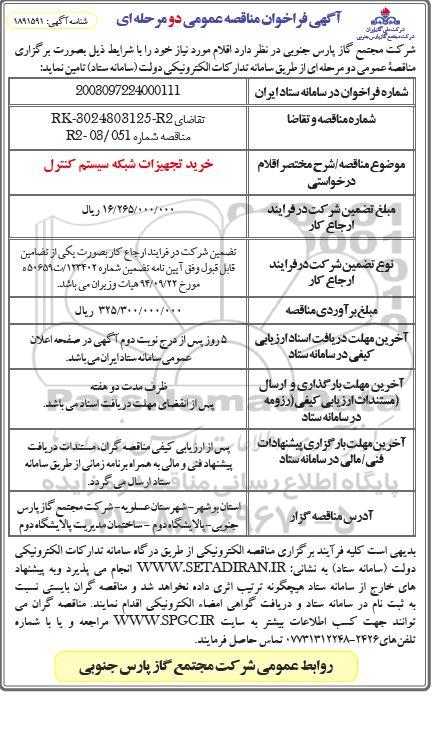 آگهی فراخوان مناقصه عمومی دو مرحله ای
شناسه آگهی: ۱۸۹۱۵۹۱
شرکت ملی گاز ایران
شرکت مجتمع گاز پارس جنوبی
شرکت مجتمع گاز پارس جنوبی در نظر دارد اقلام مورد نیاز خود را با شرایط ذیل بصورت برگزاری
مناقصهٔ عمومی دو مرحله ای از طریق سامانه تدارکات الکترونیکی دولت (سامانه ستاد) تامین نماید:
شماره فراخوان در سامانه ستاد ایران
2003097224000111
شماره مناقصه و تقاضا
تقاضای RK-3024803125-R2
مناقصه شماره R2- 03/ 051
موضوع مناقصه/شرح مختصر اقلام
درخواستی
خرید تجهیزات شبکه سیستم کنترل
مبلغ تضمین شرکت در فرایند
ارجاع کار
۱۶/۲۶۵/۰۰۰/۰۰۰ ریال
نوع تضمین شرکت در فرایند
ارجاع کار
تضمین شرکت در فرایند ارجاع کار بصورت یکی از تضامین
قابل قبول وفق آیین نامه تضمین شماره ۱۲۳۴۰۲/ت۵۰۶۵۹ ه
مورخ ۹۴/۰۹/۲۲ هیات وزیران می باشد.
مبلغ برآوردی مناقصه
۳۲۵/۳۰۰/۰۰۰/۰۰۰ ریال
آخرین مهلت دریافت اسناد ارزیابی
کیفی در سامانه ستاد
۵ روز پس از درج نوبت دوم آگهی در صفحه اعلان
عمومی سامانه ستاد ایران می باشد.
آخرین مهلت بارگذاری و ارسال
(مستندات ارزیابی کیفی (رزومه
در سامانه ستاد
ظرف مدت دو هفته
پس از انقضای مهلت دریافت اسناد می باشد.
آخرین مهلت بارگزاری پیشنهادات
فنی/مالی در سامانه ستاد
پس از ارزیابی کیفی مناقصه گران، مستندات دریافت
پیشنهاد فنی و مالی به همراه برنامه زمانی از طریق سامانه
ستاد ارسال می گردد.
آدرس مناقصه گزار
استان بوشهر - شهرستان عسلویه - شرکت مجتمع گاز پارس
جنوبی - پالایشگاه دوم - ساختمان مدیریت پالایشگاه دوم
بدیهی است کلیه فرآیند برگزاری مناقصه الکترونیکی از طریق درگاه سامانه تدارکات الکترونیکی
دولت (سامانه ستاد) به نشانی: WWW.SETADIRAN.IR انجام می پذیرد وبه پیشنهاد
های خارج از سامانه ستاد هیچگونه ترتیب اثری داده نخواهد شد و مناقصه گران بایستی نسبت
به ثبت نام در سامانه ستاد و دریافت گواهی امضاء الکترونیکی اقدام نمایند. مناقصه گران می
توانند جهت کسب اطلاعات بیشتر به سایت WWW.SPGC.IR مراجعه و یا با شماره
تلفن های۲۴۲۶-۰۷۷۳۱۳۱۲۲۴۸ تماس حاصل فرمایند.
روابط عمومی شرکت مجتمع گاز پارس جنوبی